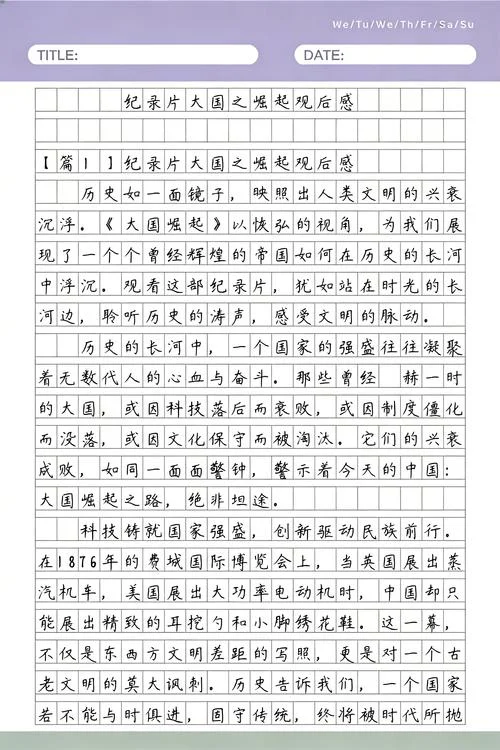 We/Tu/We/Th/Fr/Sa/Su
TITLE: DATE:
纪录片大国之崛起观后感
【篇1】纪录片大国之崛起观后感
历史如一面镜子，映照出人类文明的兴衰
沉浮。《大国崛起》以恢弘的视角，为我们展
现了一个个曾经辉煌的帝国如何在历史的长河
中浮沉。观看这部纪录片，犹如站在时光的长
河边，聆听历史的涛声，感受文明的脉动。
历史的长河中，一个国家的强盛往往凝聚
着无数代人的心血与奋斗。那些曾经 赫一时
的大国，或因科技落后而衰败，或因制度僵化
而没落，或因文化保守而被淘汰。它们的兴衰
成败，如同一面面警钟，警示着今天的中国：
大国崛起之路，绝非坦途。
科技铸就国家强盛，创新驱动民族前行。
在1876年的费城国际博览会上，当英国展出蒸
汽机车，美国展出大功率电动机时，中国却只
能展出精致的耳挖勺和小脚绣花鞋。这一幕，
不仅是东西方文明差距的写照，更是对一个古
老文明的莫大讽刺。历史告诉我们，一个国家
若不能与时俱进，固守传统，终将被时代所抛